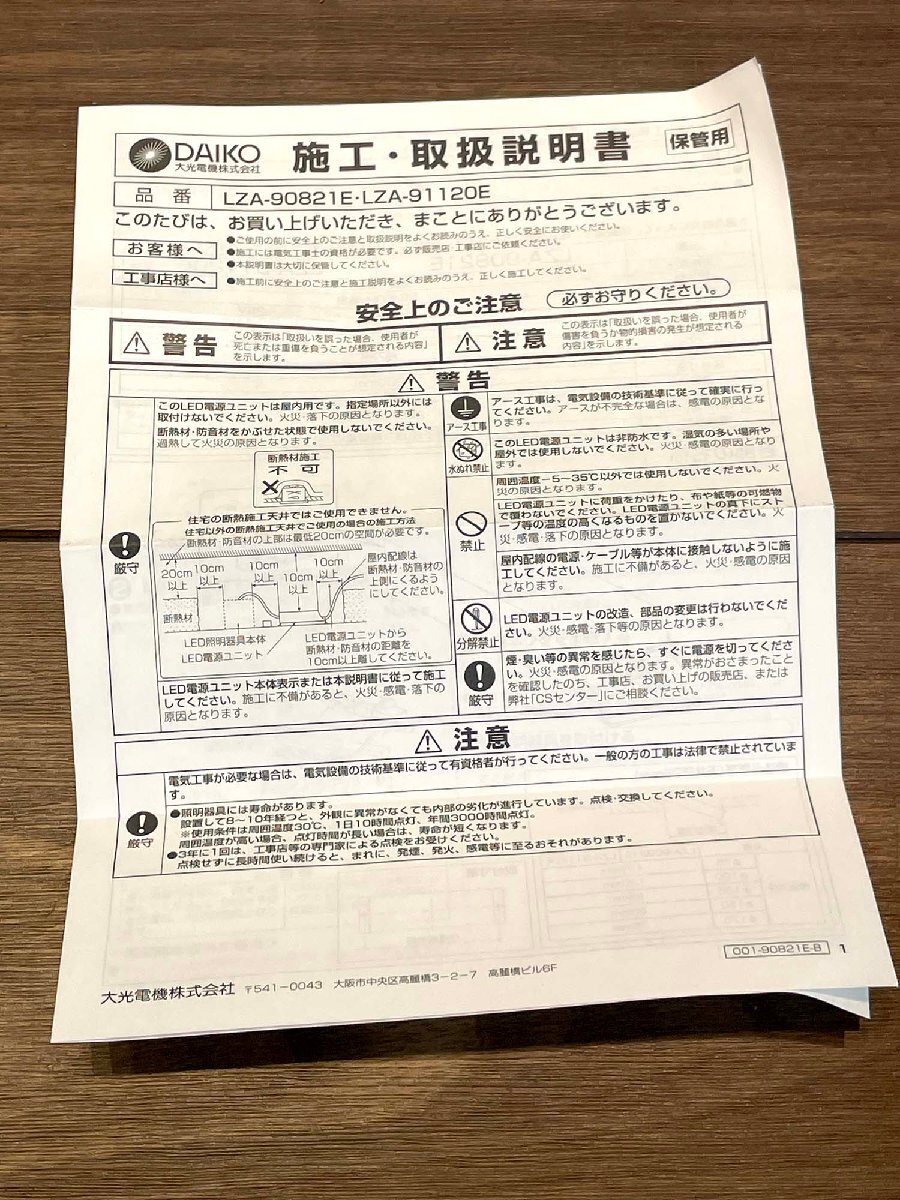 DAIKO
大光電機株式会社
施工・取扱説明書
保管用
品番
LZA-90821E・LZA-91120E
このたびは、お買い上げいただき、まことにありがとうございます。
お客様へ
●ご使用の前に安全上のご注意と取扱説明をよくお読みのうえ、正しく安全にお使いください。
●施工には電気工事士の資格が必要です。必ず販売店・工事店にご依頼ください。
●本説明書は大切に保管してください。
工事店様へ
●施工前に安全上のご注意と施工説明をよくお読みのうえ、正しく施工してください。
安全上のご注意
必ずお守りください。
警告
この表示は「取扱いを誤った場合、使用者が
死亡または重傷を負うことが想定される内容」
を示します。
注意
この表示は「取扱いを誤った場合、使用者が
傷害を負うか物的損害の発生が想定される
内容」を示します。
警告
厳守
このLED電源ユニットは屋内用です。指定場所以外には
取付けないでください。火災・落下の原因となります。
断熱材・防音材をかぶせた状態で使用しないでください。
過熱して火災の原因となります。
断熱材施工
不可
住宅の断熱施工天井ではご使用できません。
住宅以外の断熱施工天井でご使用の場合の施工方法
断熱材・防音材の上部は最低20cmの空間が必要です。
20cm
以上
10cm
以上
10cm
以上
10cm
以上
10cm
以上
屋内配線は
断熱材・防音材の
上側にくるよう
にしてください。
断熱材
LED照明器具本体
LED電源ユニット
LED電源ユニットから
断熱材・防音材の距離を
10cm以上離してください。
LED電源ユニット本体表示または本説明書に従って施工
してください。施工に不備があると、火災・感電・落下の
原因となります。
アース工事
アース工事は、電気設備の技術基準に従って確実に行っ
てください。アースが不完全な場合は、感電の原因とな
ります。
水ぬれ禁止
このLED電源ユニットは非防水です。湿気の多い場所や
屋外では使用しないでください。火災・感電の原因となり
ます。
禁止
周囲温度-5~35℃以外では使用しないでください。火
災の原因となります。
LED電源ユニットに荷重をかけたり、布や紙等の可燃物
で覆わないでください。LED電源ユニットの真下にスト
ーブ等の温度の高くなるものを置かないでください。火
災・感電・落下の原因となります。
屋内配線の電源・ケーブル等が本体に接触しないように施
工してください。施工に不備があると、火災・感電の原因
となります。
分解禁止
LED電源ユニットの改造、部品の変更は行わないでくだ
さい。火災・感電・落下等の原因となります。
厳守
煙・臭い等の異常を感じたら、すぐに電源を切ってくださ
い。火災・感電の原因となります。異常がおさまったこと
を確認したのち、工事店、お買い上げの販売店、または
弊社「CSセンター」にご相談ください。
注意
厳守
電気工事が必要な場合は、電気設備の技術基準に従って有資格者が行ってください。一般の方の工事は法律で禁止されていま
す。
●照明器具には寿命があります。
設置して8~10年経つと、外観に異常がなくても内部の劣化が進行しています。点検・交換してください。
※使用条件は周囲温度30℃、1日10時間点灯、年間3000時間点灯。
周囲温度が高い場合、点灯時間が長い場合は、寿命が短くなります。
●3年に1回は、工事店等の専門家による点検をお受けください。
点検せずに長時間使い続けると、まれに、発煙、発火、感電等に至るおそれがあります。
001-90821E-B
1
大光電機株式会社 〒541-0043 大阪市中央区高麗橋3-2-7 高麗橋ビル6F